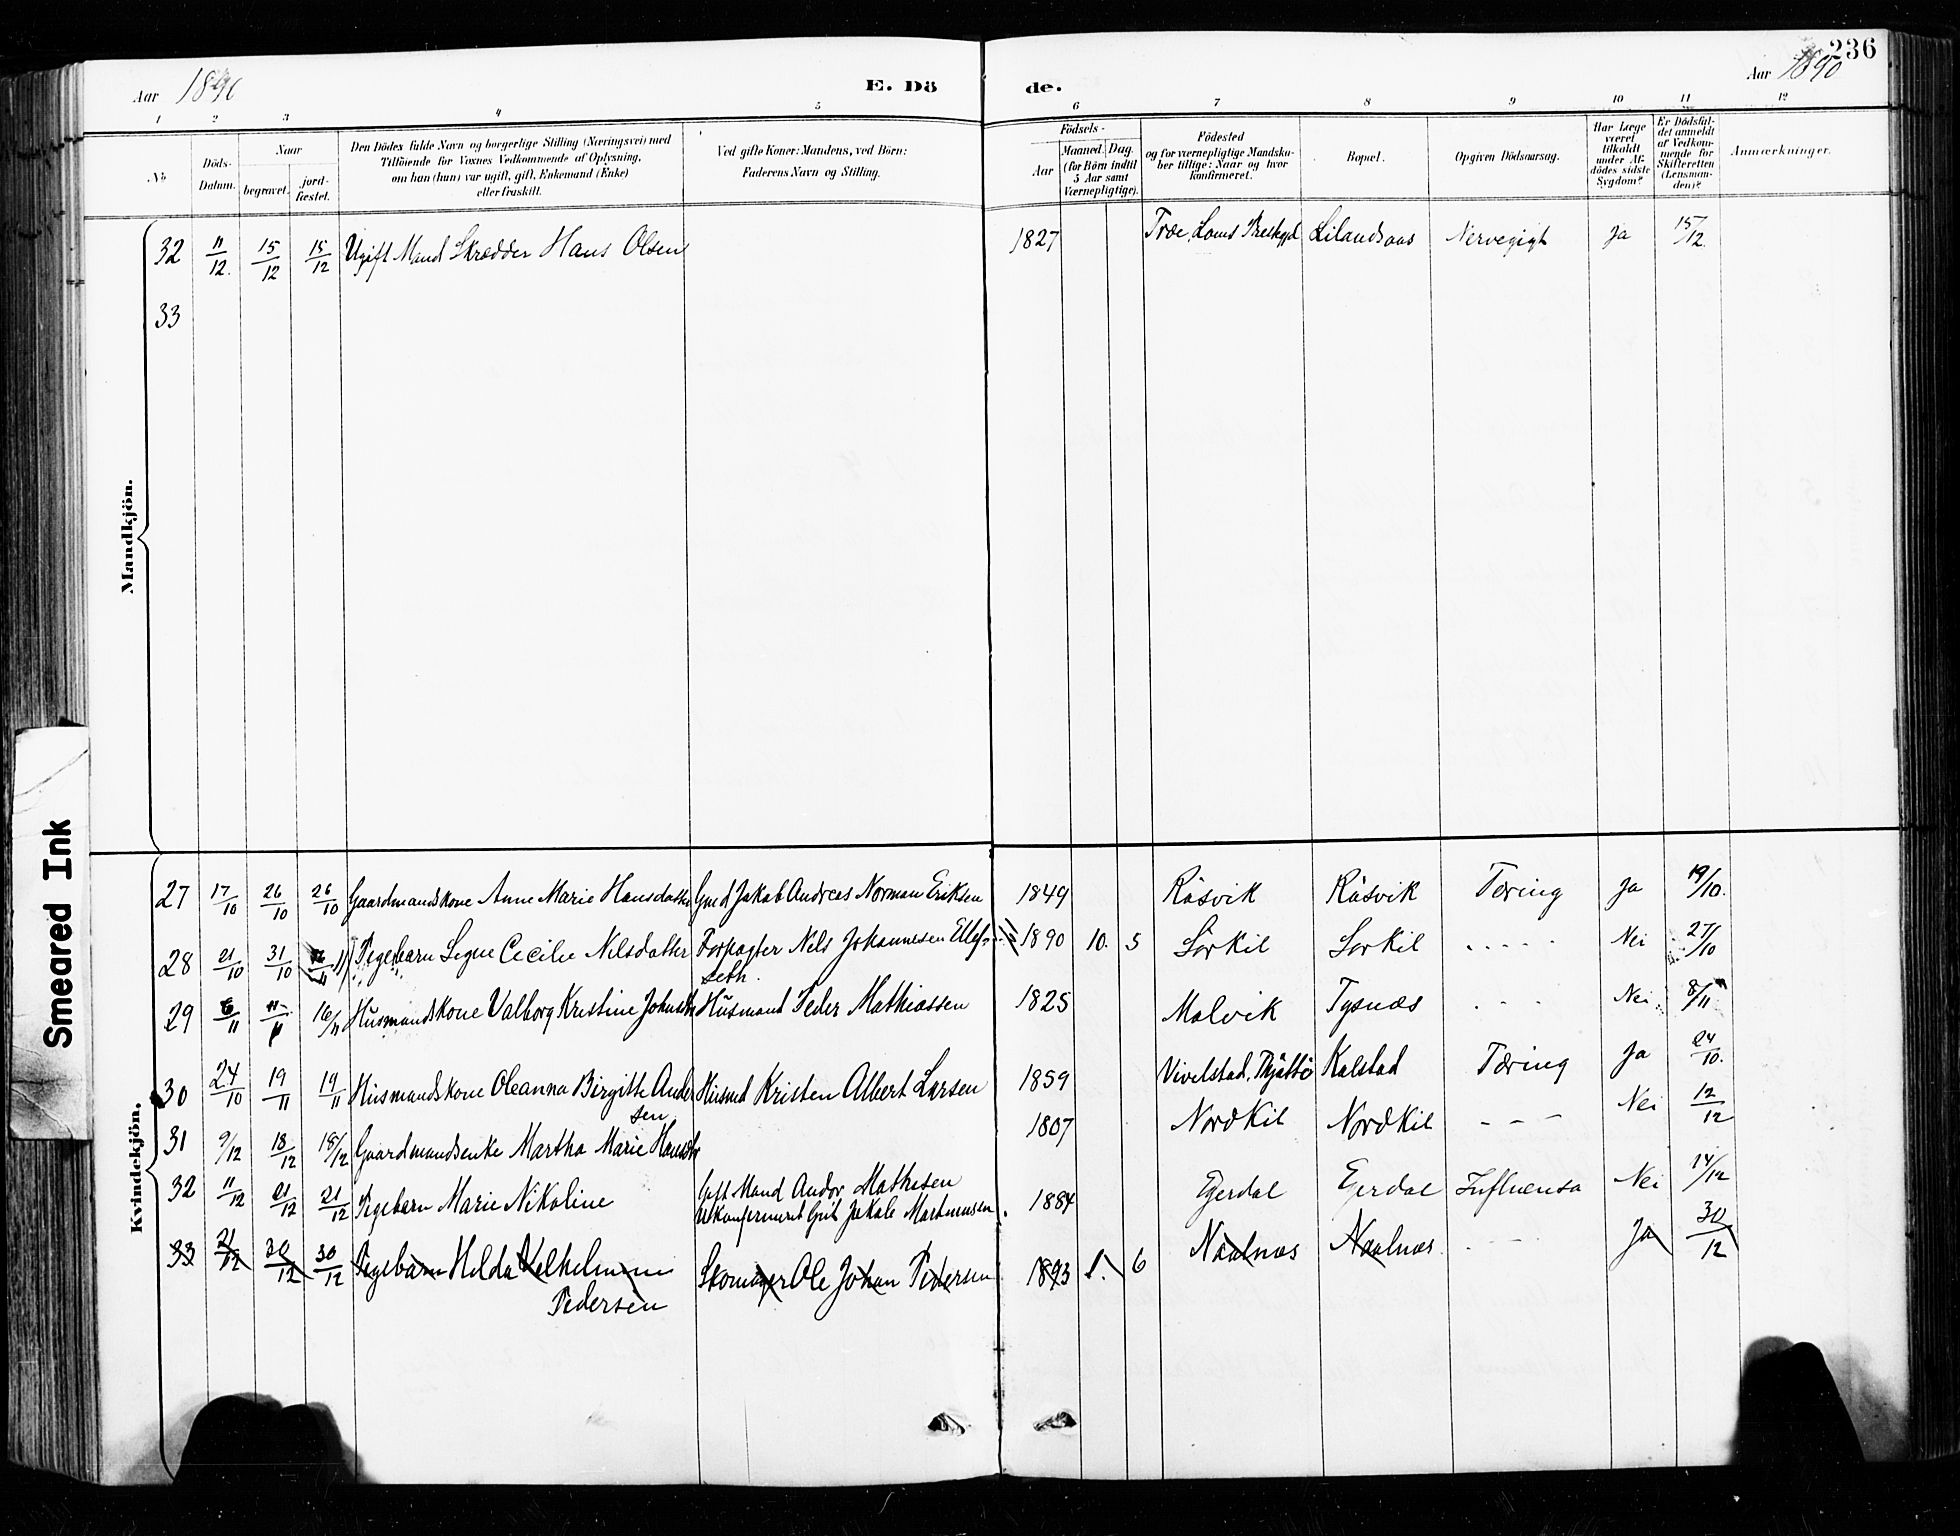 236
Aar 1890
E. Döde.
Aar 1890
1 2 3 4 5 6 7 8 9 10 11 12
No.
Döds-Datum.
Naar
begravet.
jord-fæstet.
Den Dödes fulde Navn og borgerlige Stilling (Næringsvei) med
Tilföiende for Voxnes Vedkommende af Oplysning,
om han (hun) var ugift, gift, Enkemand (Enke)
eller fraskilt.
Ved gifte Koner: Mandens, ved Börn:
Faderens Navn og Stilling.
Födsels-
Aar
Maaned. Dag.
(for Börn indtil
5 Aar samt
Værnepligtige).
Födested
og for værnepligtige Mandska-
ber tillige: Naar og hvor
konfirmeret.
Bopæl.
Opgiven Dödsaarsag.
Har Læge
været
tilkaldt
under Af-
dödes sidste
Sygdom?
Er Dödsfal-
det anmeldt
af Vedkom-
mende for
Skifteretten
(Lensman-
den)?
Anmærkninger.
Mandkjön.
32 11/12. 15/12 15/12 Ugift Mand Skrædder Hans Olsen 1827 Lilandsaas Nervegigt Ja 15/12.
33
Smeared Ink
Kvindekjön.
27 17/10 26/10 26/10 Gaardmandskone Anne Marie Hansdatter Gmd Jakob Andreas Norman Eriksen 1849 Råsvik Råsvik Tæring Ja 19/10.
28 21/10 31/10 Pigebarn Signe Cecilie Nilsdatter Forpagter Nils Johannesen Ellef- 1890 10. 5 Sörkil Sörkil - - - - - Nei 27/10
seth.
29 6/11 16/11 Husmandskone Valborg Kristine Husmand Peder Mathiassen 1825 Malvik Tysnæs - - - Nei 8/11
30 24/10 19/11 19/11 Husmandskone Oleanna Birgitte Ander Husmd Kristen Albert Larsen 1859 Vivelstad, Tjøttø Kalstad Tæring Ja 24/10.
sen
31 9/12 18/12 18/12 Gaardmandsenke Martha Marie 1807 Nordkil Nordkil - - - Nei 12/12
32 11/12 21/12 21/12 Pigebarn Marie Nikoline Gift Mand Andor Mathisen 1884 Egerdal Egerdal Influensa Nei 14/12
33 21/12 30/12 30/12 Pigebarn Hilda Pedersen Skomager Ole Johan Pedersen 1893 1. 6 Naalnæs Naalnæs - - - Ja 30/12